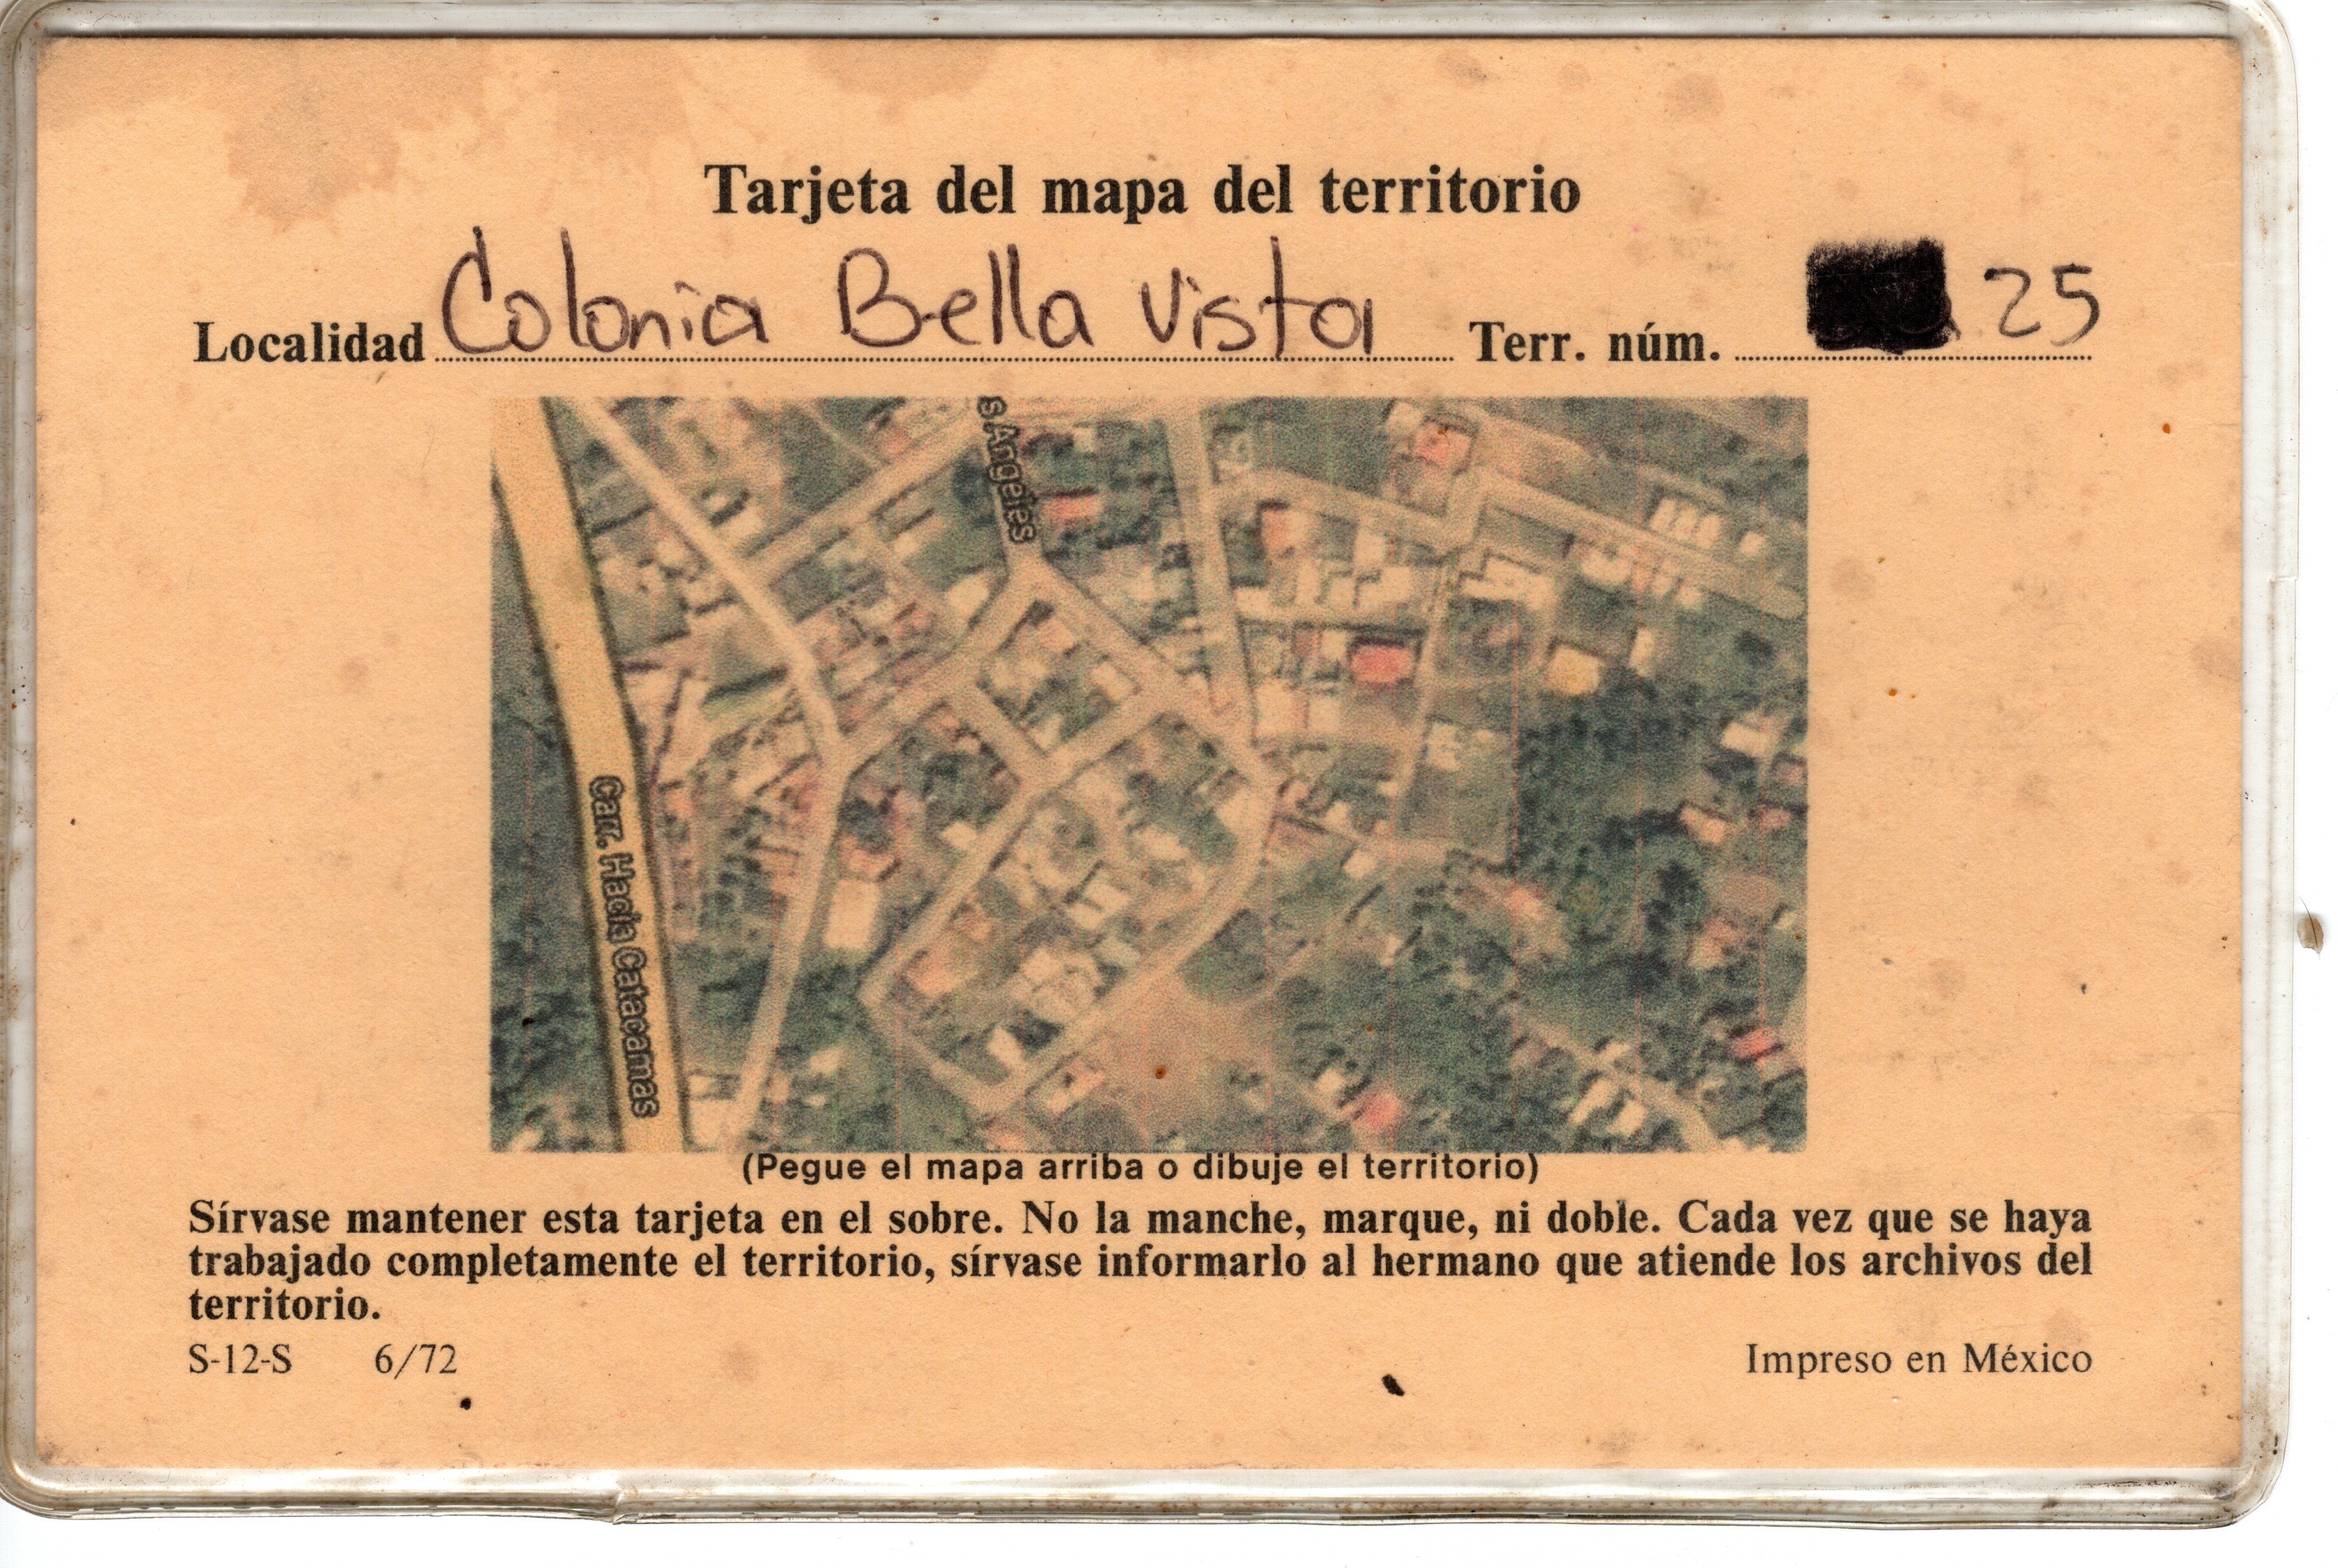 Tarjeta del mapa del territorio
Localidad Colonia Bella Vista Terr. núm. 25
s Angeles
Carr. Hacia Catacamas
(Pegue el mapa arriba o dibuje el territorio)
Sírvase mantener esta tarjeta en el sobre. No la manche, marque, ni doble. Cada vez que se haya
trabajado completamente el territorio, sírvase informarlo al hermano que atiende los archivos del
territorio.
S-12-S 6/72 Impreso en México